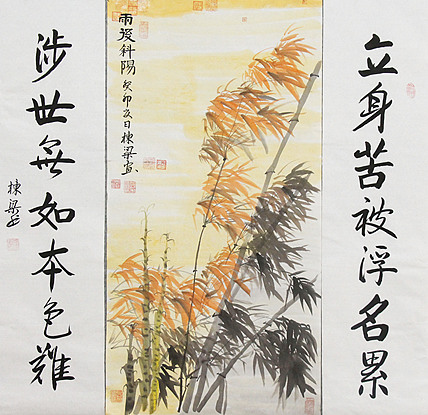 立身苦被浮名累
雨後斜陽
癸卯夏日棟梁寫
涉世無如本色難
棟梁書